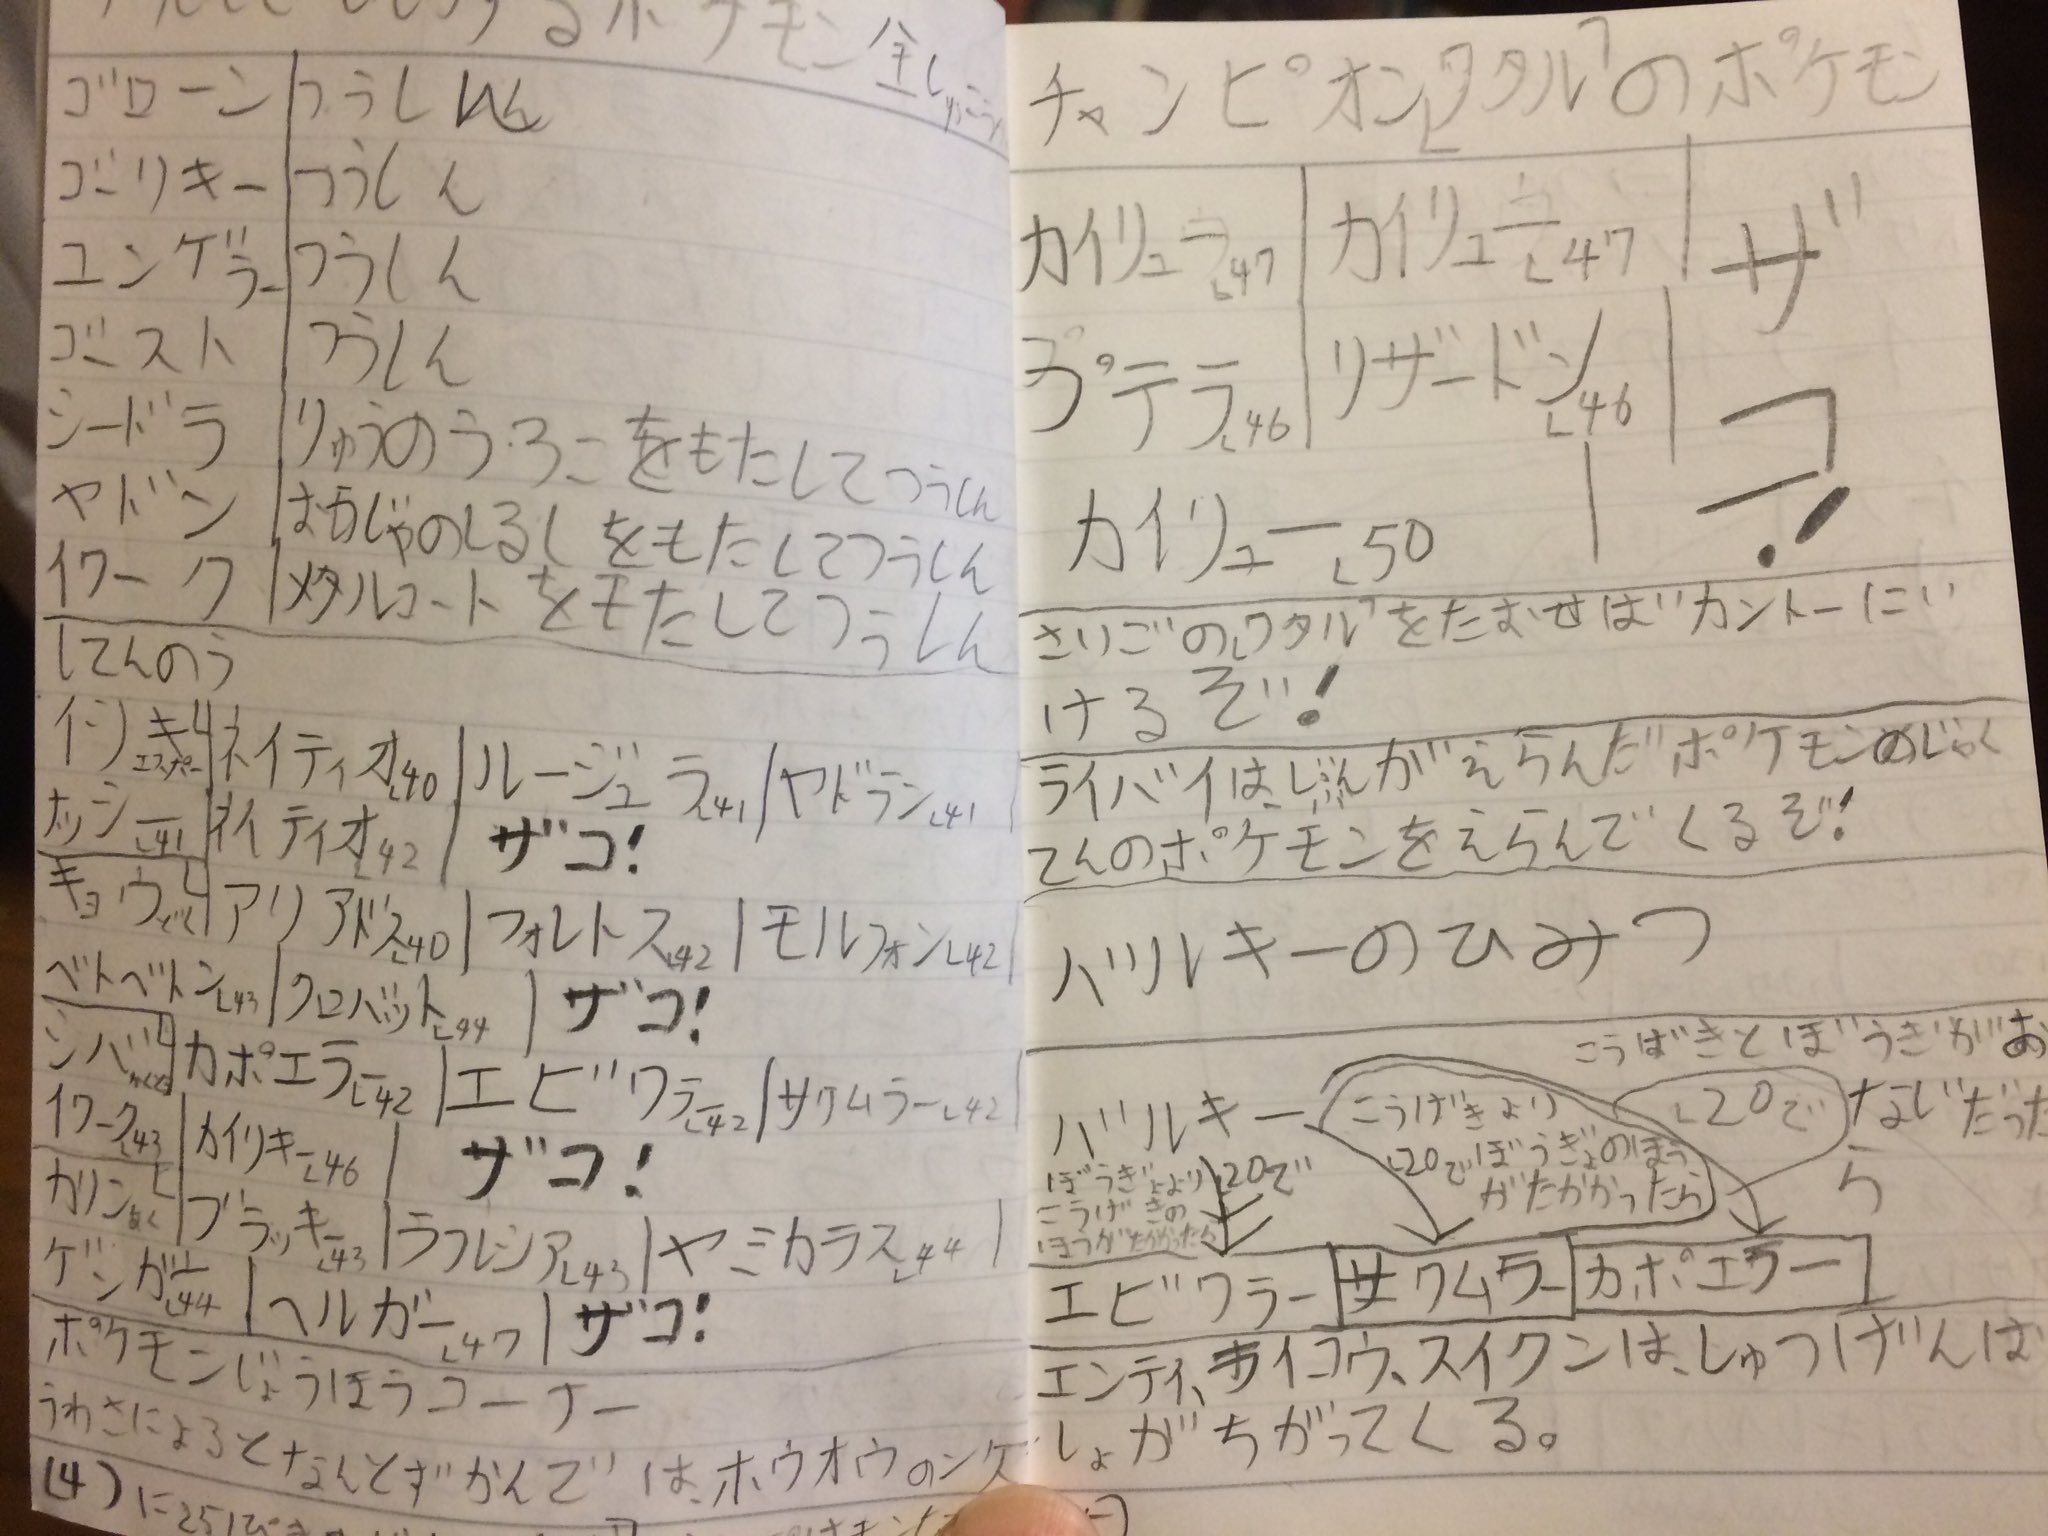 するポケモン全しょうかい
ゴローン つうしん
ゴーリキー つうしん
ユンゲラー つうしん
ゴースト つうしん
シードラ りゅうのうろこをもたしてつうしん
ヤドン おうじゃのしるしをもたしてつうしん
イワーク メタルコートをモたしてつうしん
してんのう
イツキ エスパー ネイティオL40 ルージュラL41 ヤドランL41
ナッシーL41 ネイティオL42 ザコ!
キョウ どく アリアドスL40 フォルトスL42 モルフォンL42
ベトベトンL43 クロバットL44 ザコ!
シバ かくとう カポエラーL42 エビワラーL42 サワムラーL42
イワークL43 カイリキーL46 ザコ!
カリン あく ブラッキーL43 ラフレシアL43 ヤミカラスL44
ゲンガーL44 ヘルガーL47 ザコ!
ポケモンじょうほうコーナー
うわさによるとなんとずかんでは、ホウオウのンゲ
(4)に251ひき
チャンピオン「ワタル」のポケモン
カイリューL47 カイリューL47 ザコ!
プテラL46 リザードンL46
カイリューL50
さいごの「ワタル」をたおせばカントーにい
けるぞ!
ライバイは、じぶんがえらんだポケモンのじゃく
てんのポケモンをえらんでくるぞ!
バルキーのひみつ
こうげきとぼうぎがお
なじだった
ら
L20で
バルキー
こうげきより
L20でぼうぎょのほう
がたかかったら
ぼうぎょより
こうげきの
ほうがたかかったら
L20で
エビワラー サワムラー カポエラー
エンテイ、ライコウ、スイクンは、しゅつげんば
しょがちがってくる。